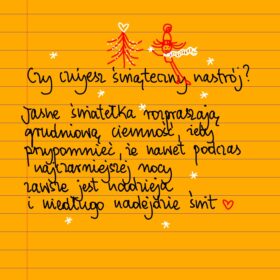 Czy czujesz świąteczny nastrój?
Jasne światełka rozpraszają
grudniową ciemność, żeby
przypomnieć, że nawet podczas
najczarniejszej nocy
zawsze jest nadzieja
i niedługo nadejdzie świt